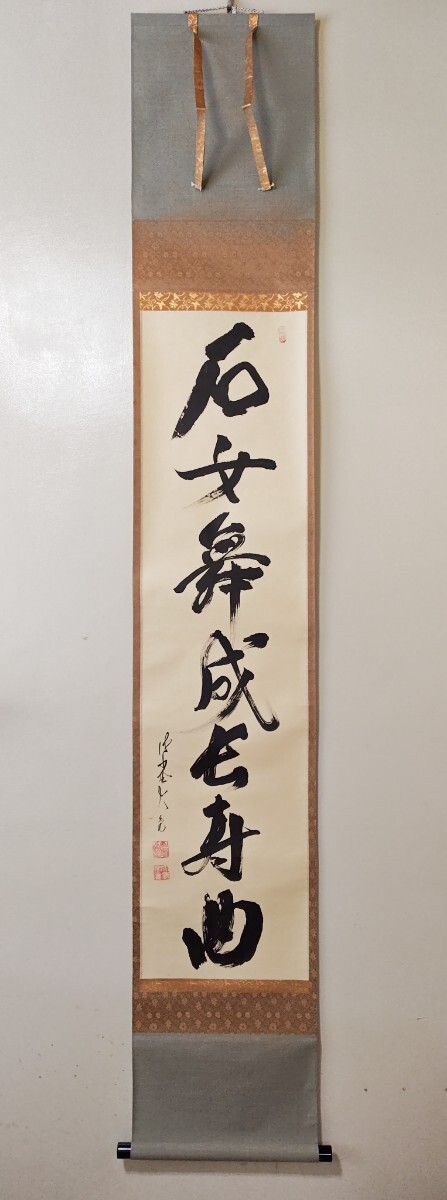 石女舞成長寿曲